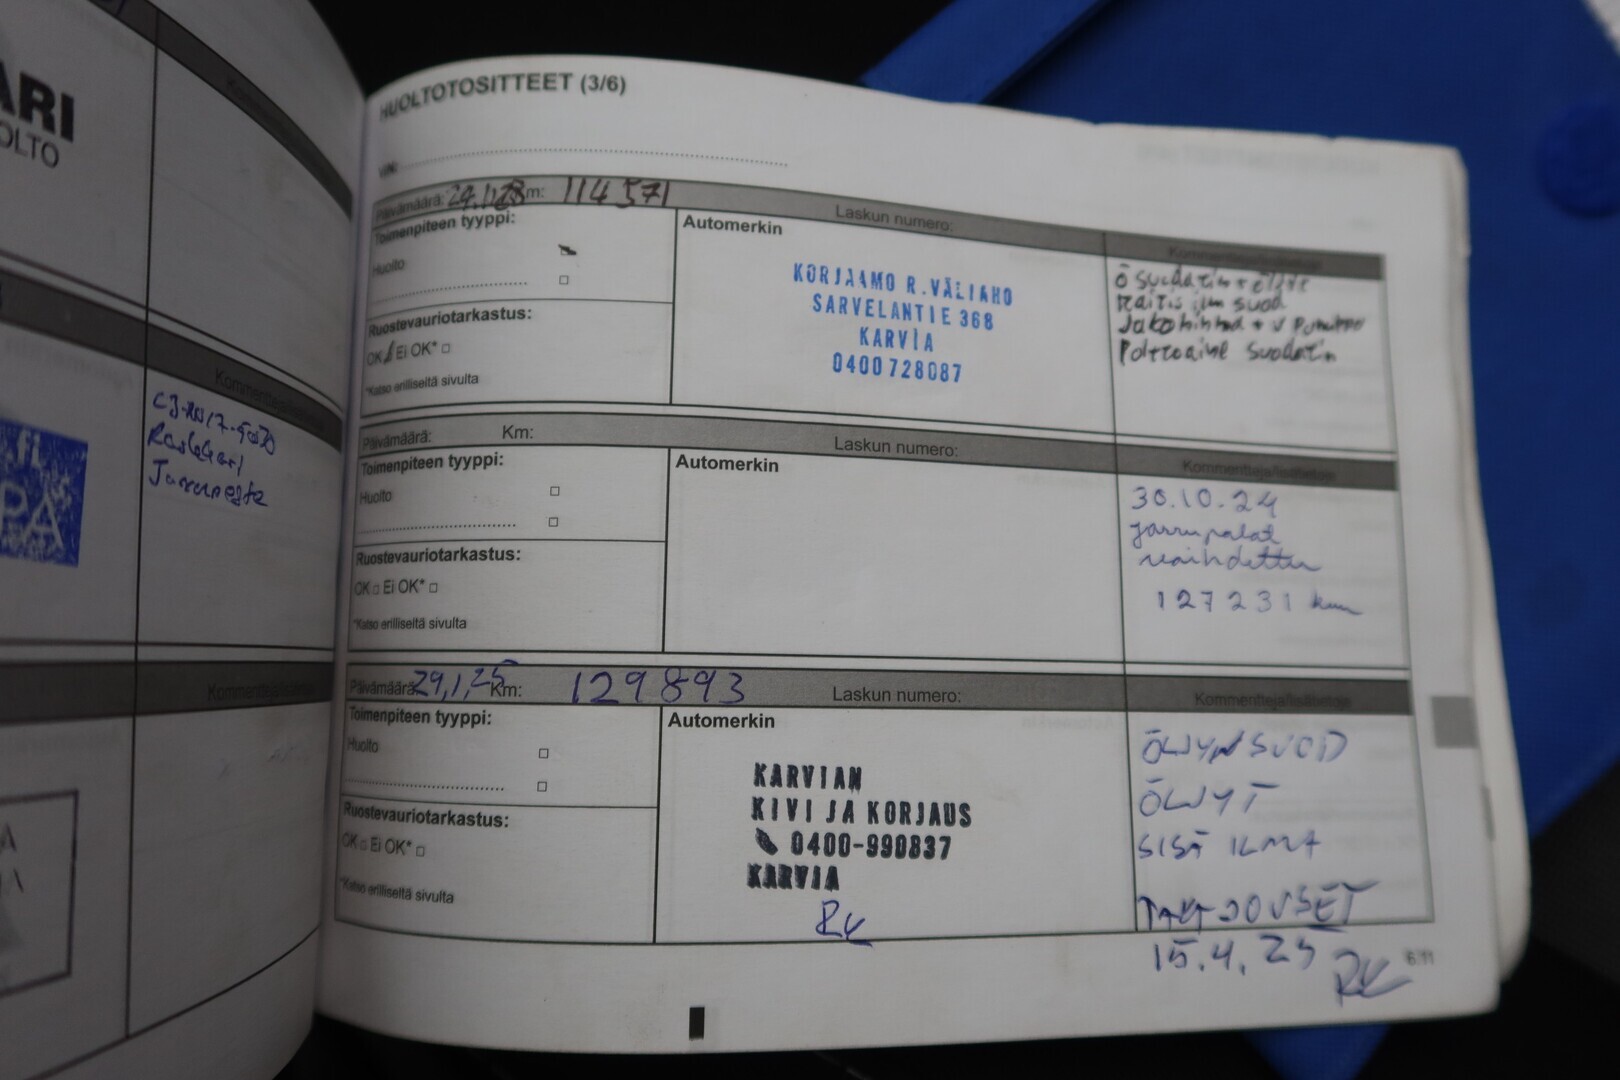 ARI
OLTO
Kommentteja/lisätietoja
C3-AN17-5W30
Raslahari
Jarruneste
FI
PA
Kommentteja/lisätietoja
A
A
HUOLTOTOSITTEET (3/6)
VIN:
Päivämäärä: Km: 114571
Laskun numero:
Kommentteja/lisätietoja
Toimenpiteen tyyppi:
Huolto
Ruostevauriotarkastus:
OK Ei OK* □
*Katso erilliseltä sivulta
Automerkin
KORJAAMO R.VÄLIAHO
SARVELANTIE 368
KARVIA
0400 728087
Ö suodatin + öljyt
raitis ilm suod
Jakohihna + v pumppu
Polttoaine suodatin
Päivämäärä: Km:
Laskun numero:
Kommentteja/lisätietoja
Toimenpiteen tyyppi:
Huolto □
□
Ruostevauriotarkastus:
OK □ Ei OK* □
*Katso erilliseltä sivulta
Automerkin
30.10.24
jarrupalat
vaihdettu
127231 km
Päivämäärä: 29,1,25 Km: 129893
Laskun numero:
Kommentteja/lisätietoja
Toimenpiteen tyyppi:
Huolto □
□
Ruostevauriotarkastus:
OK □ Ei OK* □
*Katso erilliseltä sivulta
Automerkin
KARVIAN
KIVI JA KORJAUS
0400-990837
KARVIA
RK
ÖLJYNSUOD
ÖLJYT
SISÄ ILMA
TAKAJOUSET
15.4.25 RK
6.11